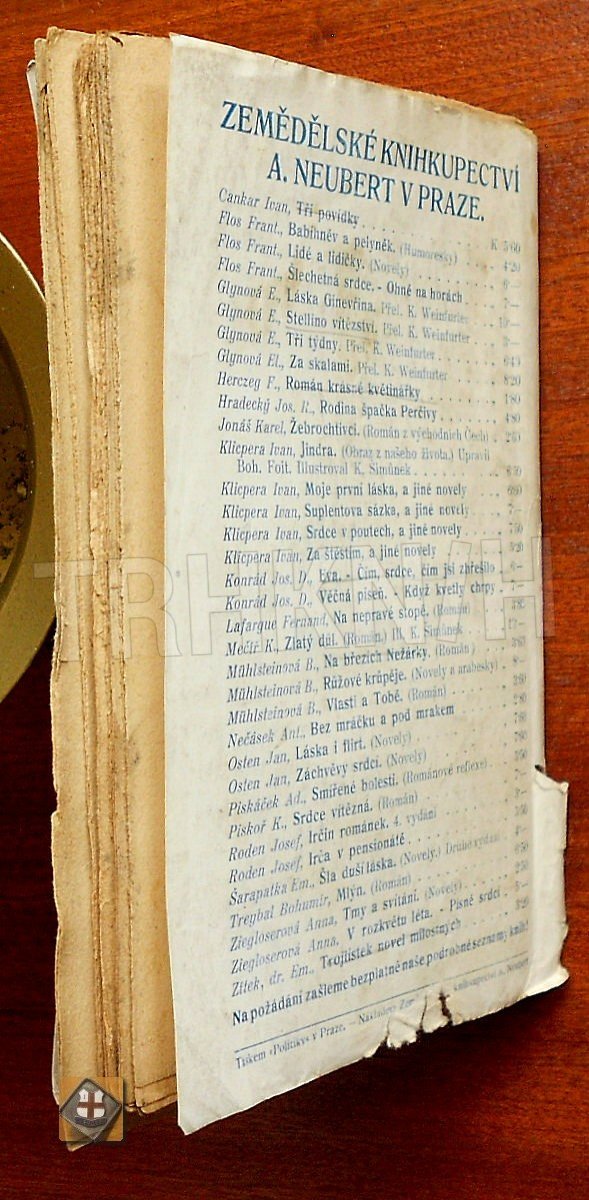 ZEMĚDĚLSKÉ KNIHKUPECTVÍ
A. NEUBERT V PRAZE.
Cankar Ivan, Tři povídky . . . . . K 5·60
Flos Frant., Babíhněv a pelyněk. (Humoresky) . . 4·20
Flos Frant., Lidé a lidičky. (Novely) . . . . 6·—
Flos Frant., Šlechetná srdce. - Ohně na horách . . 7·—
Glynová E., Láska Ginevřina. Přel. K. Weinfurter
Glynová E., Stellino vítězství. Přel. K. Weinfurter
Glynová E., Tři týdny. Přel. K. Weinfurter
Glynová El., Za skalami. Přel. K. Weinfurter
Herczeg F., Román krásné květinářky . . . . 1·80
Hradecký Jos. R., Rodina špačka Perčivy . . . . 4·80
Jonáš Karel, Žebrochtivci. (Román z východních Čech)
Klicpera Ivan, Jindra. (Obraz z našeho života.) Upravil
Boh. Fojt. Illustroval K. Šimůnek
Klicpera Ivan, Moje první láska, a jiné novely
Klicpera Ivan, Suplentova sázka, a jiné novely
Klicpera Ivan, Srdce v poutech, a jiné novely
Klicpera Ivan, Za štěstím, a jiné novely
Konrád Jos. D., Eva. - Čím, srdce, čím jsi zhřešilo
Konrád Jos. D., Věčná píseň. - Když kvetly chrpy
Lafargue Fernand, Na nepravé stopě. (Román)
Mečíř K., Zlatý důl. (Román.) Ill. K. Šimůnek
Mühlsteinová B., Na březích Nežárky. (Román)
Mühlsteinová B., Růžové krůpěje. (Novely a arabesky)
Mühlsteinová B., Vlasti a Tobě. (Román)
Nečásek Ant., Bez mráčku a pod mrakem
Osten Jan, Láska i flirt. (Novely)
Osten Jan, Záchvěvy srdcí. (Novely)
Piskáček Ad., Smířené bolesti. (Románové reflexe)
Piskoř K., Srdce vítězná. (Román)
Roden Josef, Irčin románek. 4. vydání
Roden Josef, Irča v pensionátě
Šarapatka Em., Šla duší láska. (Novely.) Druhé vydání
Treybal Bohumír, Mlýn. (Román)
Ziegloserová Anna, Tmy a svítání. (Novely)
Ziegloserová Anna, V rozkvětu léta. - Písně srdcí
Žitek, dr. Em., Trojlístek novel milostných
Na požádání zašleme bezplatně naše podrobné seznamy knih!
Tiskem »Politiky« v Praze. — Nákladem Zem knihkupectví A. Neubert
TRHKNIH